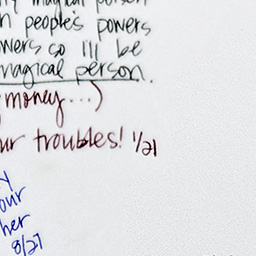 magical
n people's powers
wers so I'll be
magical person.
money...)
ur troubles! 1/21
y
our
her
8/27